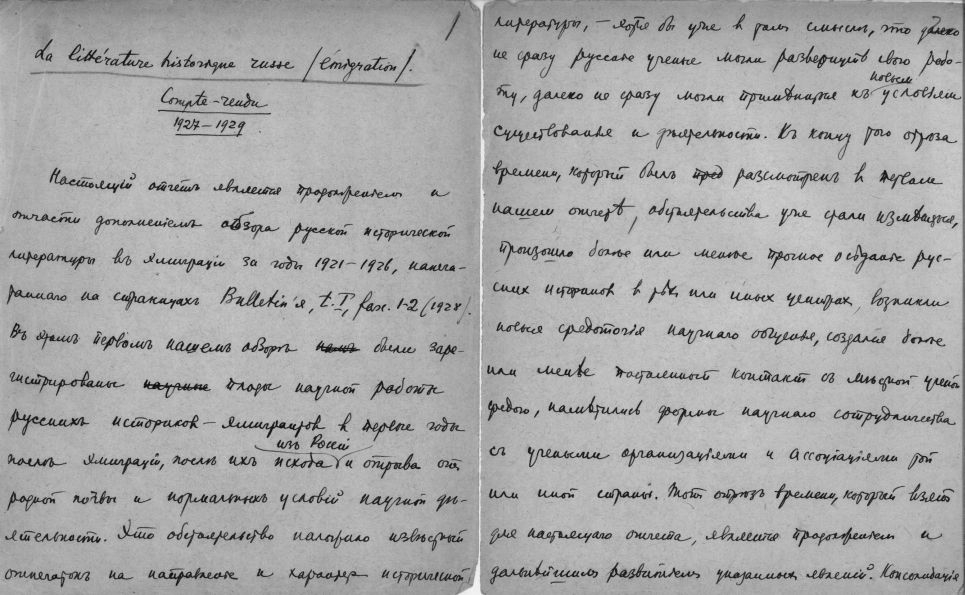 1
La littérature historique russe /émigration/.
Compte-rendu
1927–1929
Настоящій отчетъ является продолженіем и
отчасти дополненіемъ обзора русской исторической
литературы въ эмиграціи за годы 1921–1926, напеча-
таннаго на страницахъ Bulletin'я, t. I, fasc. 1-2 (1928).
Въ этомъ первомъ нашем обзорѣ нами были заре-
гистрированы научные плоды научной работы
русскихъ историков – эмигрантов в первые годы
изъ Россіи
послѣ эмиграціи, послѣ ихъ исхода и отрыва отъ
родной почвы и нормальныхъ условій научной дѣ-
ятельности. Это обстоятельство наложило извѣстный
отпечатокъ на направленіе и характер исторической
литературы, – хотя бы уже в том смыслѣ, что далеко
не сразу русскіе ученые могли развернуть свою рабо-
новым
ту, далеко не сразу могли примѣниться къ условіям
существованія и дѣятельности. Къ концу того отрѣза
времени, который былъ пред разсмотрѣн в первом
нашем отчетѣ, обстоятельства уже стали измѣняться,
произошло болѣе или менѣе прочное осѣданіе рус-
ских историков в тѣх или иных центрах, возникли
новые средоточія научнаго общенія, создался болѣе
или менѣе постоянный контакт съ мѣстной ученой
средою, намѣтились формы научнаго сотрудничества
съ учеными организаціями и ассоціаціями той
или иной страны. Тот отрѣзъ времени, который взят
для настоящаго отчета, является продолженіем и
дальнѣйшим развитіем указанных явленій. Консолидація